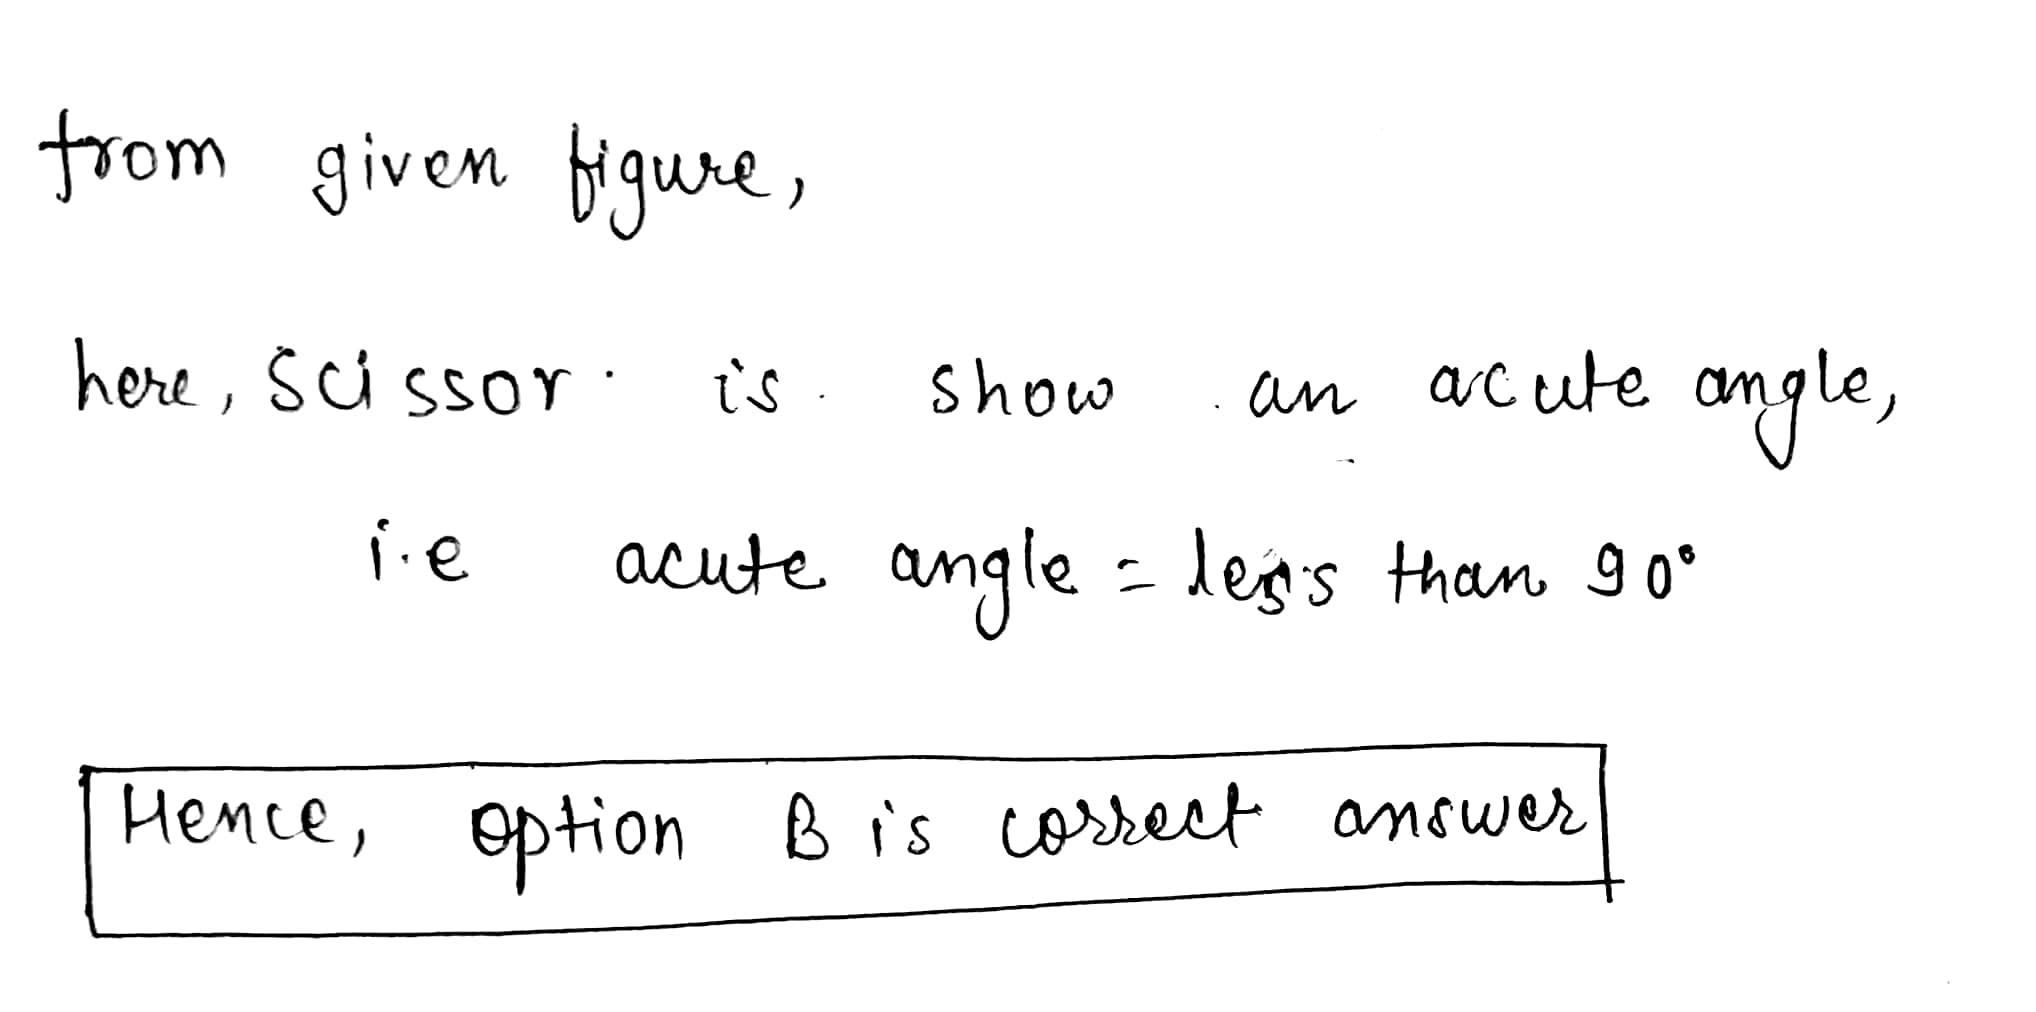 from given figure,
here, scissor is show an acute angle,
i.e acute angle = less than 90°
Hence, option B is correct answer